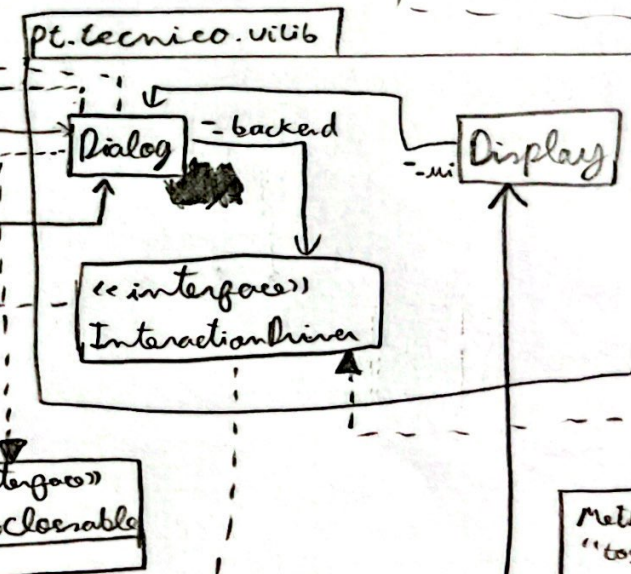 pt.tecnico.uilib
Dialog
-_backend
Display
-_ui
<<interface>>
InteractionDriver
terface>>
closeable
Met
"to